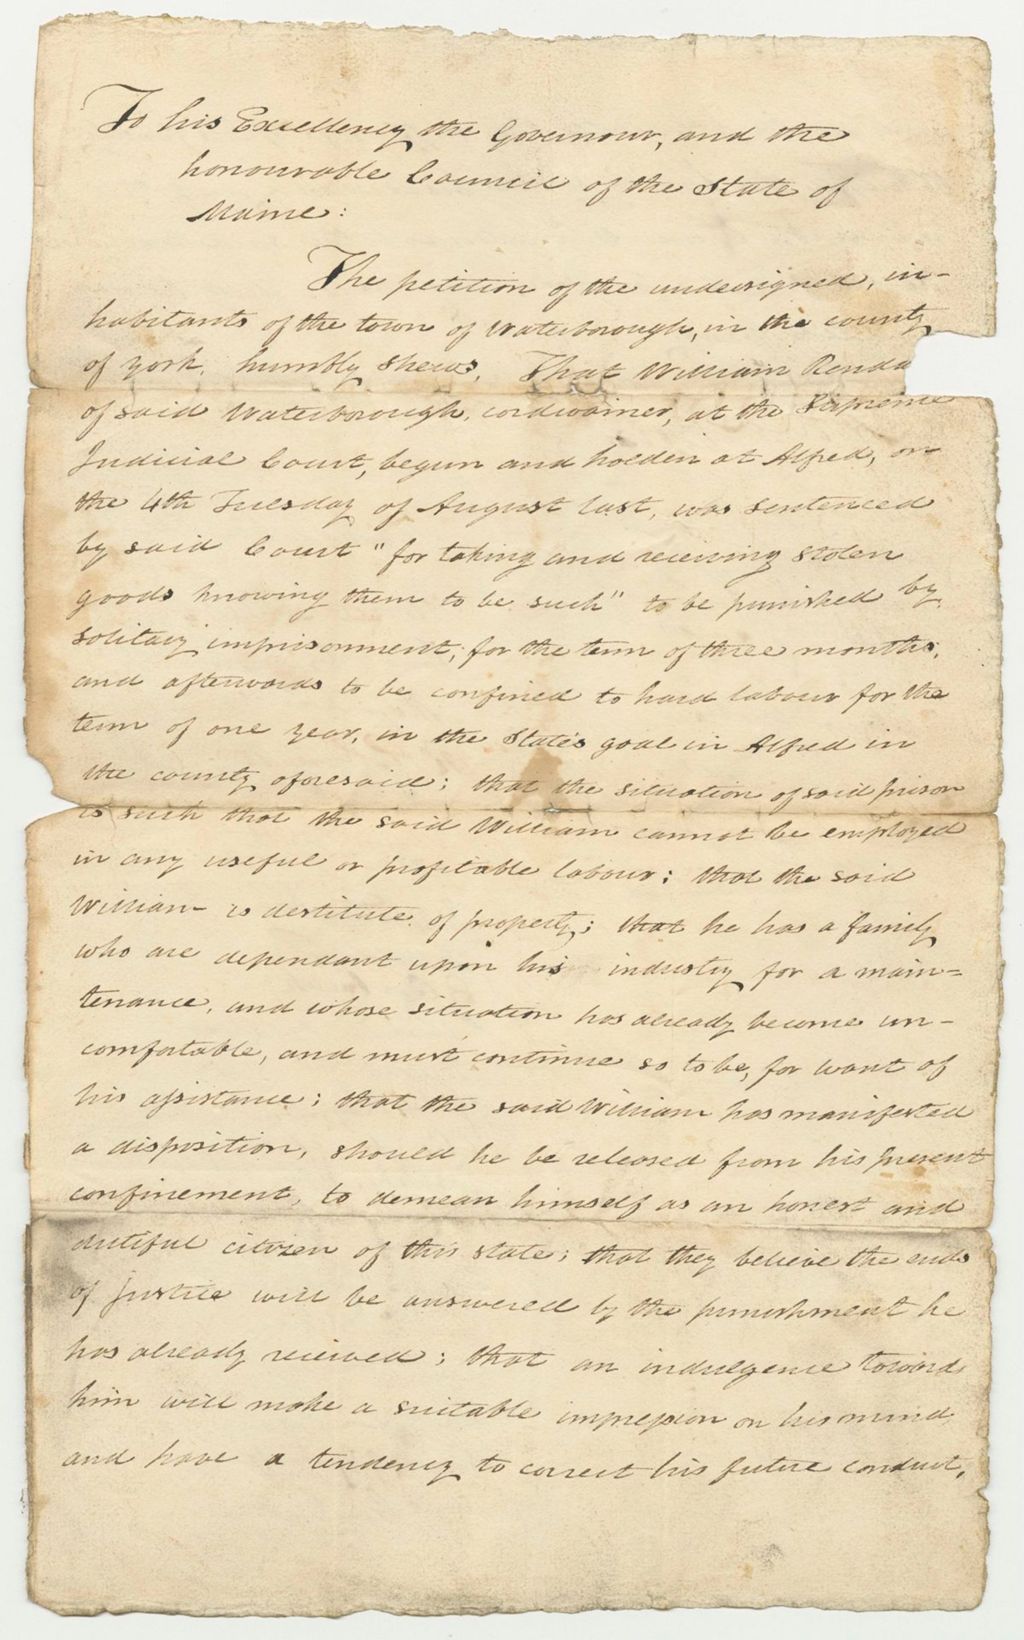 To his Excellency the Governour, and the
honourable Council of the State of
Maine:
The petition of the undersigned, in-
habitants of the town of Waterborough, in the county
of York, humbly shews, That William Renda
of said Waterborough, cordwainer, at the Supreme
Judicial Court, begun and holden at Alfred, on
the 4th Tuesday of August last, was sentenced
by said Court "for taking and receiving stolen
goods knowing them to be such" to be punished by
solitary imprisonment, for the term of three months,
and afterwards to be confined to hard labour for the
term of one year, in the State's goal in Alfred in
the county aforesaid; that the situation of said prison
is such that the said William cannot be employed
in any useful or profitable labour; that the said
William is destitute of property; that he has a family
who are dependant upon his industry for a main=
tenance, and whose situation has already become un-
comfortable, and must continue so to be, for want of
his assistance; that the said William has manifested
a disposition, should he be released from his present
confinement, to demean himself as an honest and
dutiful citizen of this state; that they believe the ends
of justice will be answered by the punishment he
has already received; that an indulgence toward
him will make a suitable impression on his mind
and have a tendency to correct his future conduct.